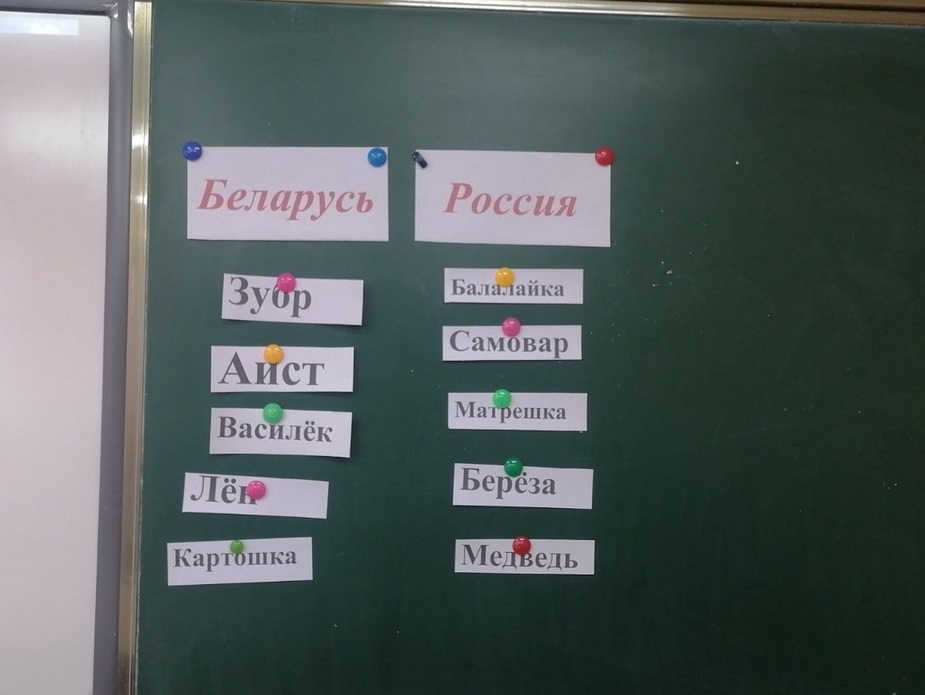 Беларусь
Зубр
Аист
Василёк
Лён
Картошка
Россия
Балалайка
Самовар
Матрешка
Берёза
Медведь